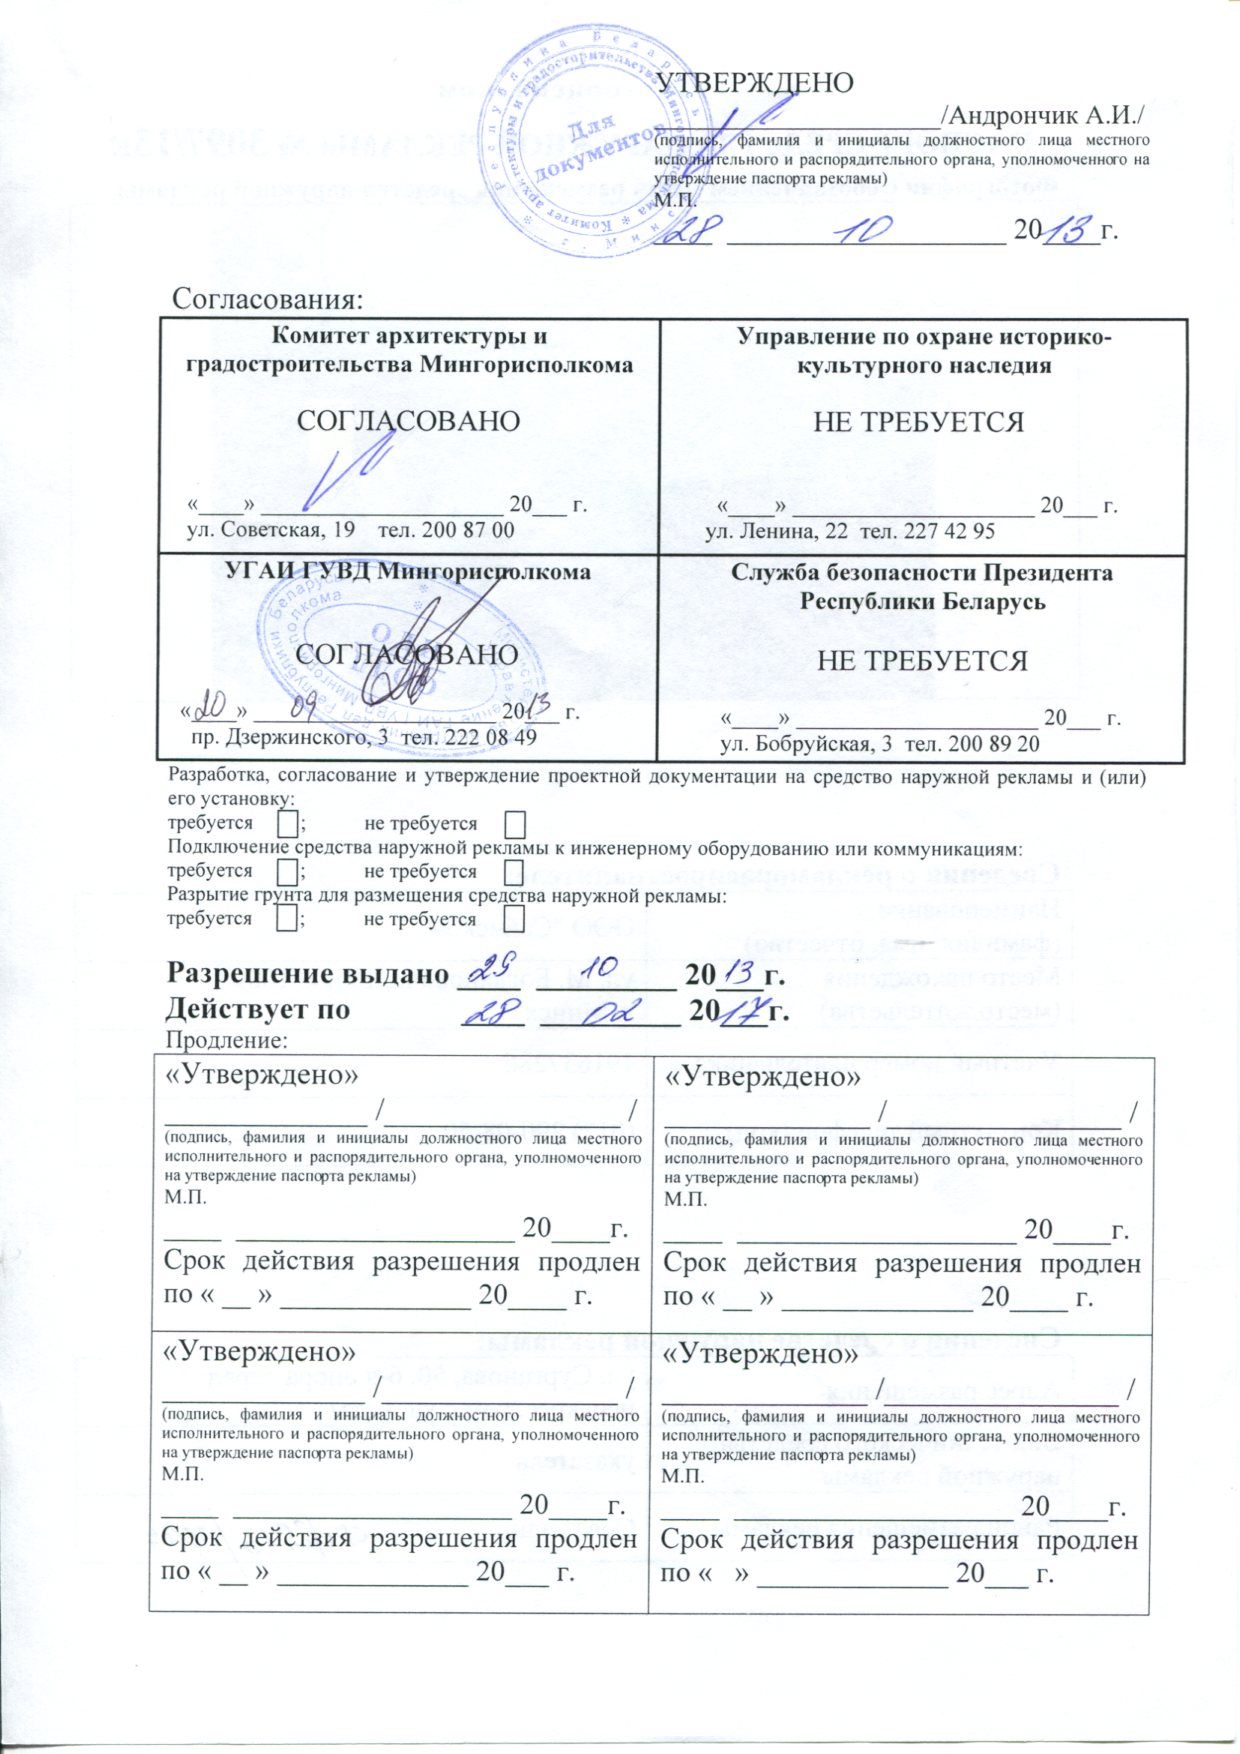 УТВЕРЖДЕНО
/Андрончик А.И./
(подпись, фамилия и инициалы должностного лица местного
исполнительного и распорядительного органа, уполномоченного на
утверждение паспорта рекламы)
М.П.
28 10 2013 г.
Для
документов
Республика Беларусь
Комитет архитектуры и градостроительства Мингорисполкома
г. Минск
Согласования:
Комитет архитектуры и
градостроительства Мингорисполкома
СОГЛАСОВАНО
«____» ____________________ 20___ г.
ул. Советская, 19 тел. 200 87 00
Управление по охране историко-
культурного наследия
НЕ ТРЕБУЕТСЯ
«____» ____________________ 20___ г.
ул. Ленина, 22 тел. 227 42 95
УГАИ ГУВД Мингорисполкома
СОГЛАСОВАНО
«20» 09 2013 г.
пр. Дзержинского, 3 тел. 222 08 49
Служба безопасности Президента
Республики Беларусь
НЕ ТРЕБУЕТСЯ
«____» ____________________ 20___ г.
ул. Бобруйская, 3 тел. 200 89 20
Разработка, согласование и утверждение проектной документации на средство наружной рекламы и (или)
его установку:
требуется ; не требуется
Подключение средства наружной рекламы к инженерному оборудованию или коммуникациям:
требуется ; не требуется
Разрытие грунта для размещения средства наружной рекламы:
требуется ; не требуется
Разрешение выдано 29 10 2013 г.
Действует по 28 02 2017 г.
Продление:
«Утверждено»
______________ /________________ /
(подпись, фамилия и инициалы должностного лица местного
исполнительного и распорядительного органа, уполномоченного
на утверждение паспорта рекламы)
М.П.
____ ____________________ 20____г.
Срок действия разрешения продлен
по « __ » ______________ 20____ г.
«Утверждено»
______________ /________________ /
(подпись, фамилия и инициалы должностного лица местного
исполнительного и распорядительного органа, уполномоченного
на утверждение паспорта рекламы)
М.П.
____ ____________________ 20____г.
Срок действия разрешения продлен
по « __ » ______________ 20____ г.
«Утверждено»
______________ /________________ /
(подпись, фамилия и инициалы должностного лица местного
исполнительного и распорядительного органа, уполномоченного
на утверждение паспорта рекламы)
М.П.
____ ____________________ 20____г.
Срок действия разрешения продлен
по « __ » ______________ 20___ г.
«Утверждено»
______________ /________________ /
(подпись, фамилия и инициалы должностного лица местного
исполнительного и распорядительного органа, уполномоченного
на утверждение паспорта рекламы)
М.П.
____ ____________________ 20____г.
Срок действия разрешения продлен
по « » ______________ 20___ г.